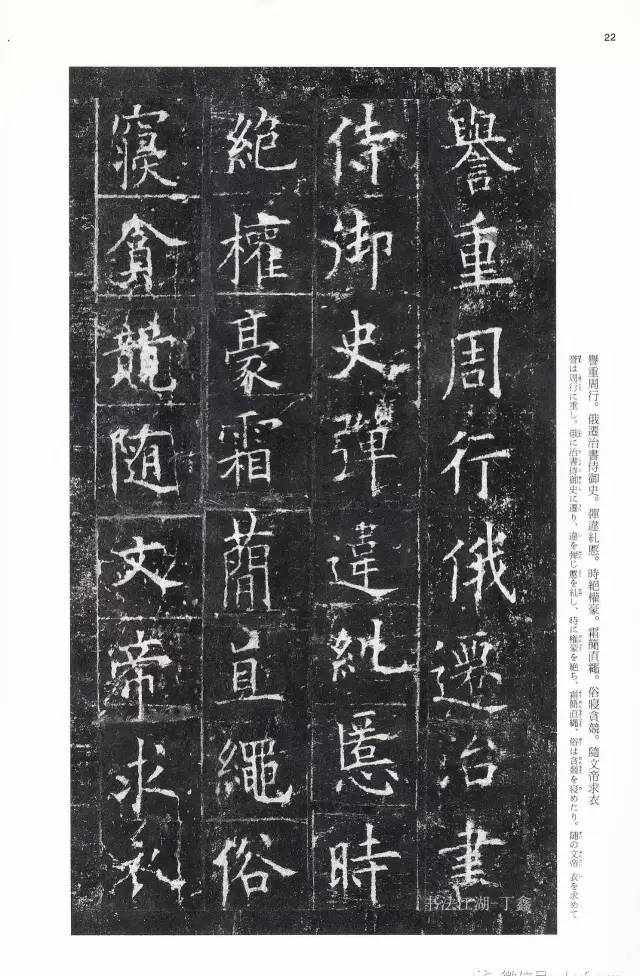 22
譽重周行俄遷治書
侍御史彈違糺慝時
絶權豪霜蕳直繩俗
寢貪競随文帝求衣
譽重周行。俄遷治書侍御史。彈違糺慝。時絕權豪。霜蕳直繩。俗寢貪競。隨文帝求衣
譽は周行に重し。俄に治書侍御史に遷り、違を彈じ慝を糺し、時に權豪を絶ち、霜簡直繩、俗は貪競を寝めたり。隨の文帝 衣を求めて
书法江湖-丁鑫